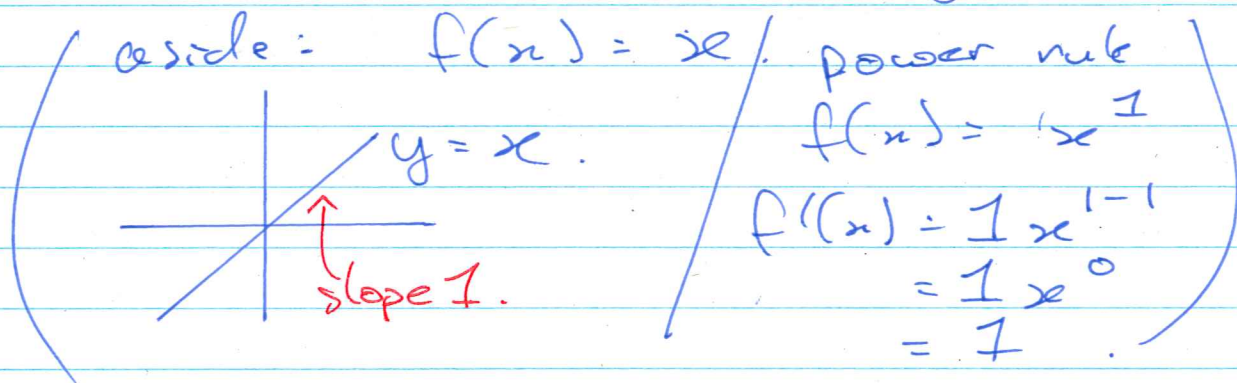 aside: f(x) = x.
y = x.
slope 1.
power rule
f(x) = x^1
f'(x) = 1 x^{1-1}
= 1 x^0
= 1.